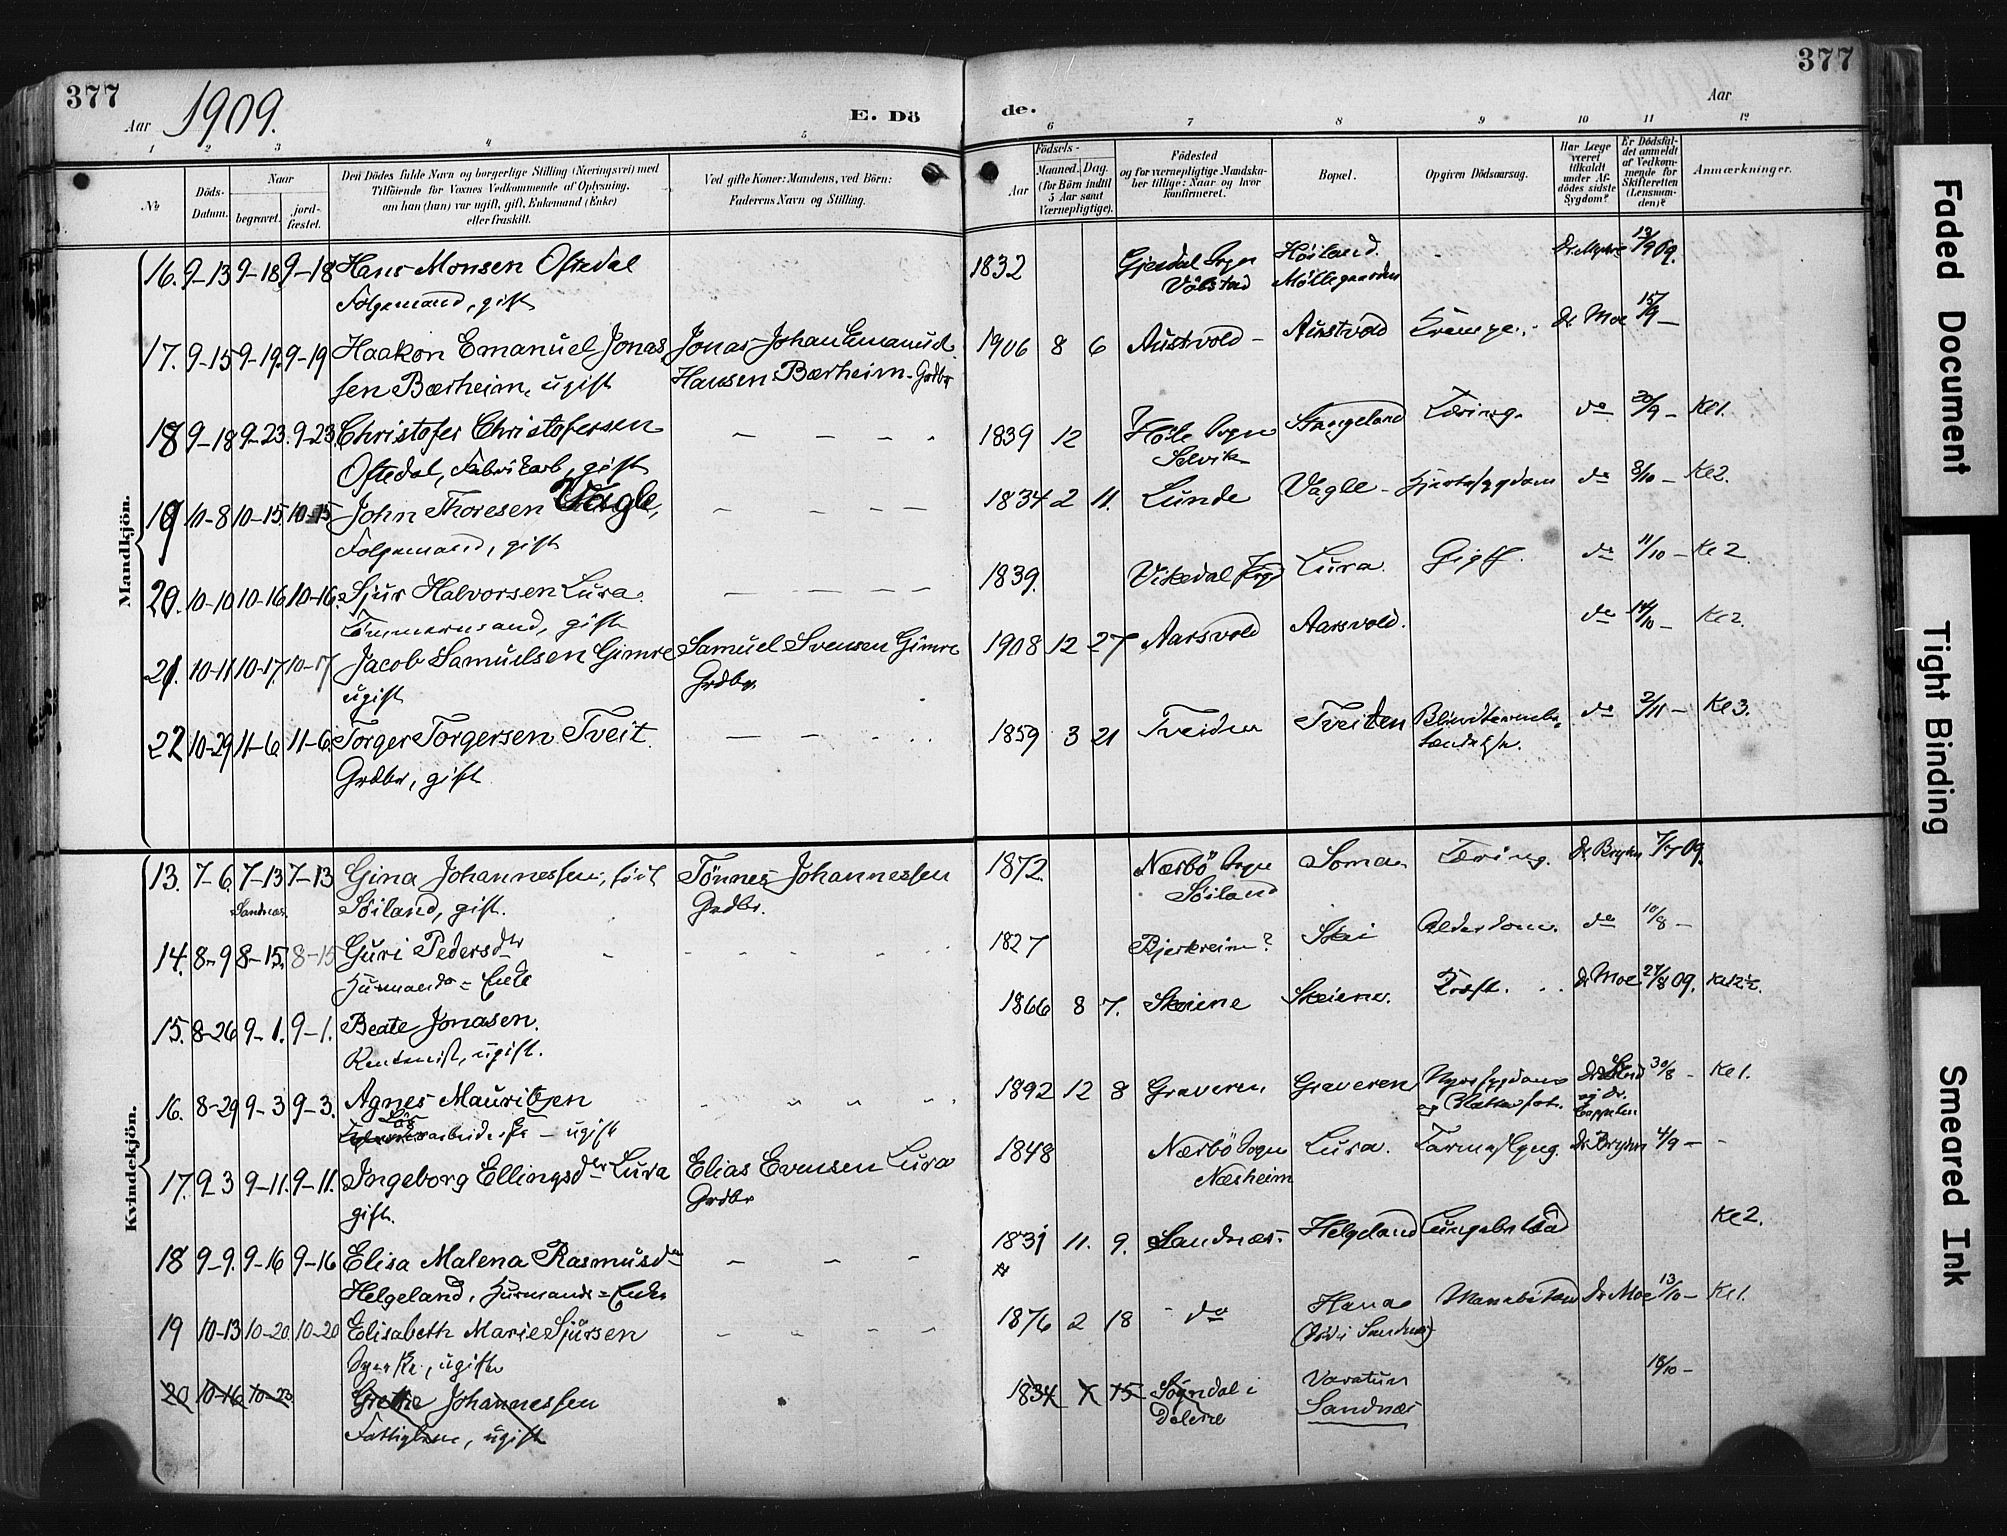 377
377
Aar 1909.
E. Dö
de.
Aar
1 2 3 4 5 6 7 8 9 10 11 12
№
Döds-
Datum.
Naar
begravet.
jord-
fæstet.
Den Dödes fulde Navn og borgerlige Stilling (Næringsvei) med
Tilföiende for Voxnes Vedkommende af Oplysning,
om han (hun) var ugift, gift, Enkemand (Enke)
eller fraskilt.
Ved gifte Koner: Mandens, ved Börn:
Faderens Navn og Stilling.
Födsels-
Aar
Maaned. Dag.
(for Börn indtil
5 Aar samt
Værnepligtige).
Födested
og for værnepligtige Mandska-
ber tillige: Naar og hvor
konfirmeret.
Bopæl.
Opgiven Dödsaarsag.
Har Læge
været
tilkaldt
under Af-
dödes sidste
Sygdom?
Er Dödsfal-
det anmeldt
af Vedkom-
mende for
Skifteretten
(Lensman-
den)?
Anmærkninger.
Mandkjön.
16. 9-13 9-18 9-18 Hans Monsen Oftedal 1832 Gjesdal Sogn Høiland. 13/9 09.
Folgemand, gift Møllegaarden
17. 9-15 9-19. 9-19 Haakon Emanuel Jonas Jonas Johan Emanuel 1906 8 6 Austvold - Austvold Krampe. Dr Moe 15/9 -
sen Bærheim, ugift Hansen Bærheim - Grdbr
18 9-18 9-23. 9-23 Christofer Christofersen - - - 1839 12 Høle Sogn Stangeland Tæring. do 20/9 - Kl 1.
Oftedal, Fabrikarb, gift Selvik
19 10-8 10-15 10-15 John Thoresen Vagle, - - - - 1834 2 11. Lunde Vagle - Hjertesygdom do 8/10 - Kl 2.
Folgemand, gift
20. 10-10 10-16 10-16. Sjur Halvorsen Lura. - - - - 1839. Vikedal Lura. Gigtf. do 11/10 - Kl 2
Tømmermand, gift
21. 10-11 10-17 10-17 Jacob Samuelsen Gimre Samuel Svensen Gimre 1908 12 27 Aarsvold Aarsvold. do 14/10 - Kl 2.
ugift Grdbr.
22 10-29 11-6 11-6 Torger Torgersen Tveit. - - 1859 3 21 Tveiden Tveiten Blindtarmbe- do 2/11 - Kl 3.
Grdbr, gift tændelse.
Kvindekjön.
13. 7-6 7-13 7-13 Gina Johannessen, født Tönnes Johannessen 1872. Nærbö Sogn Soma Tæring. Dr Bryhn 7/7 09.
Sandnæs. Söiland, gift. Grdbr. Söiland
14. 8-9 8-15. 8-15 Guri Pedersdtr 1827 Bjerkreim? Skei Alderdom. do 10/8 -
Husmands=Enke
15. 8-26 9-1. 9-1. Beate Jonasen. 1866 8 7. Skeiene Skeiene. Kræft. Dr Moe 27/8 09.
Rentenist, ugift.
16. 8-29 9-3 9-3. Agnes Mauritzen 1892 12 8 Graveren Graveren Nyresygdom 30/8 - Kl 1.
arbeiderske - ugift og dr.
17. 9-3 9-11. 9-11. Ingeborg Ellingsdtr Lura Elias Evensen Lura 1848 Nærbö Sogn Lura. Dr Bryhn 4/9 - -
gift. Grdbr Næsheim
18 9-9. 9-16 9-16 Elisa Malena Rasmusdtr - - - 1831 11. 9. Sandnæs. Helgeland Kl 2.
Helgeland, Husmands=Enke
19 10-13 10-20 10-20 Elisabeth Marie Sjursen 1876 2 18 do Hana Dr Moe 13/10 - Kl 1.
Syerske, ugift (død i Sandnæs)
20 10-16 10-23 Grethe Johannessen 1834 15 Sogndal i Varatun 18/10 -
Fattiglem, ugift Dalerne Sandnæs
Faded Document
Tight Binding
Smeared Ink